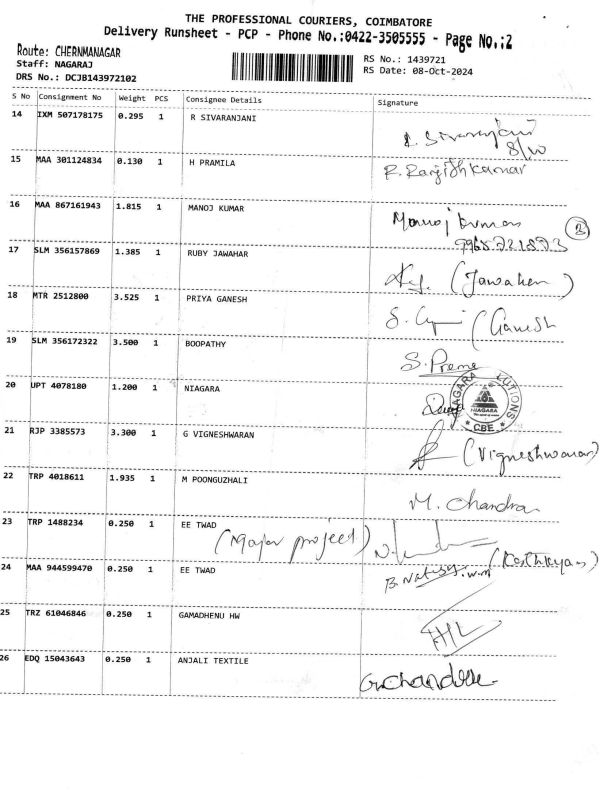 THE PROFESSIONAL COURIERS, COIMBATORE
Delivery Runsheet - PCP - Phone No.:0422-3505555 - Page No.:2
Route: CHERNMANAGAR
Staff: NAGARAJ
DRS No.: DCJB143972102
RS No.: 1439721
RS Date: 08-Oct-2024
S No Consignment No Weight PCS Consignee Details Signature
14 IXM 507178175 0.295 1 R SIVARANJANI R. Sivaranjani
8/10
15 MAA 301124834 0.130 1 H PRAMILA R. Ranjith Kumar
16 MAA 867161943 1.815 1 MANOJ KUMAR Manoj Kumar
17 SLM 356157869 1.385 1 RUBY JAWAHAR (Jawahar)
18 MTR 2512800 3.525 1 PRIYA GANESH (Ganesh
19 SLM 356172322 3.500 1 BOOPATHY S. Prema
20 UPT 4078180 1.200 1 NIAGARA
NIAGARA
CBE
21 RJP 3385573 3.300 1 G VIGNESHWARAN (Vigneshwaran)
22 TRP 4018611 1.935 1 M POONGUZHALI M. Chandra
23 TRP 1488234 0.250 1 EE TWAD (Major project)
24 MAA 944599470 0.250 1 EE TWAD (Karthikeyan)
25 TRZ 61046846 0.250 1 GAMADHENU HW
26 EDQ 15043643 0.250 1 ANJALI TEXTILE